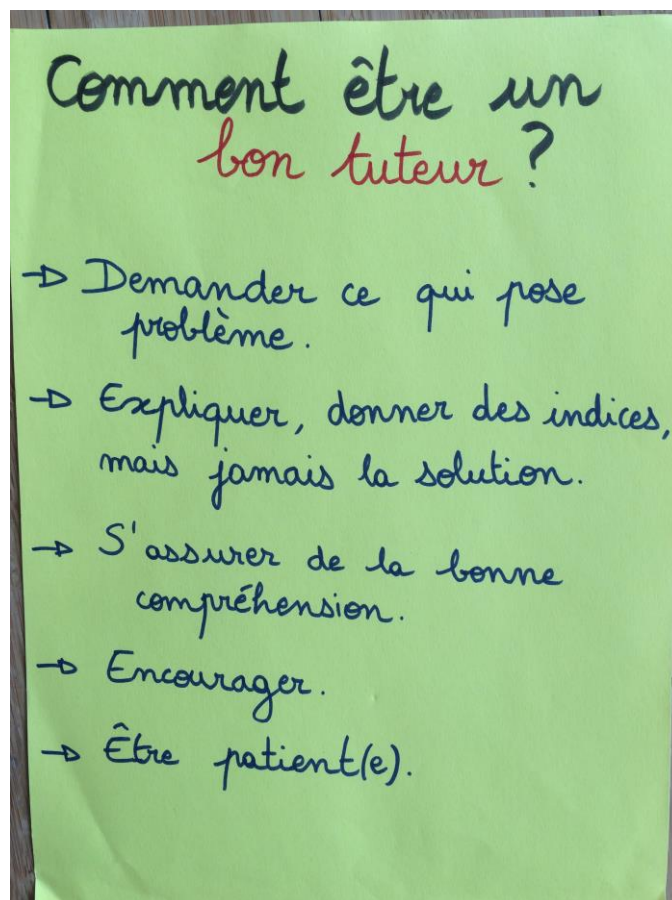 Comment être un
bon tuteur ?
→ Demander ce qui pose
problème.
→ Expliquer, donner des indices,
mais jamais la solution.
→ S'assurer de la bonne
compréhension.
→ Encourager.
→ Être patient(e).